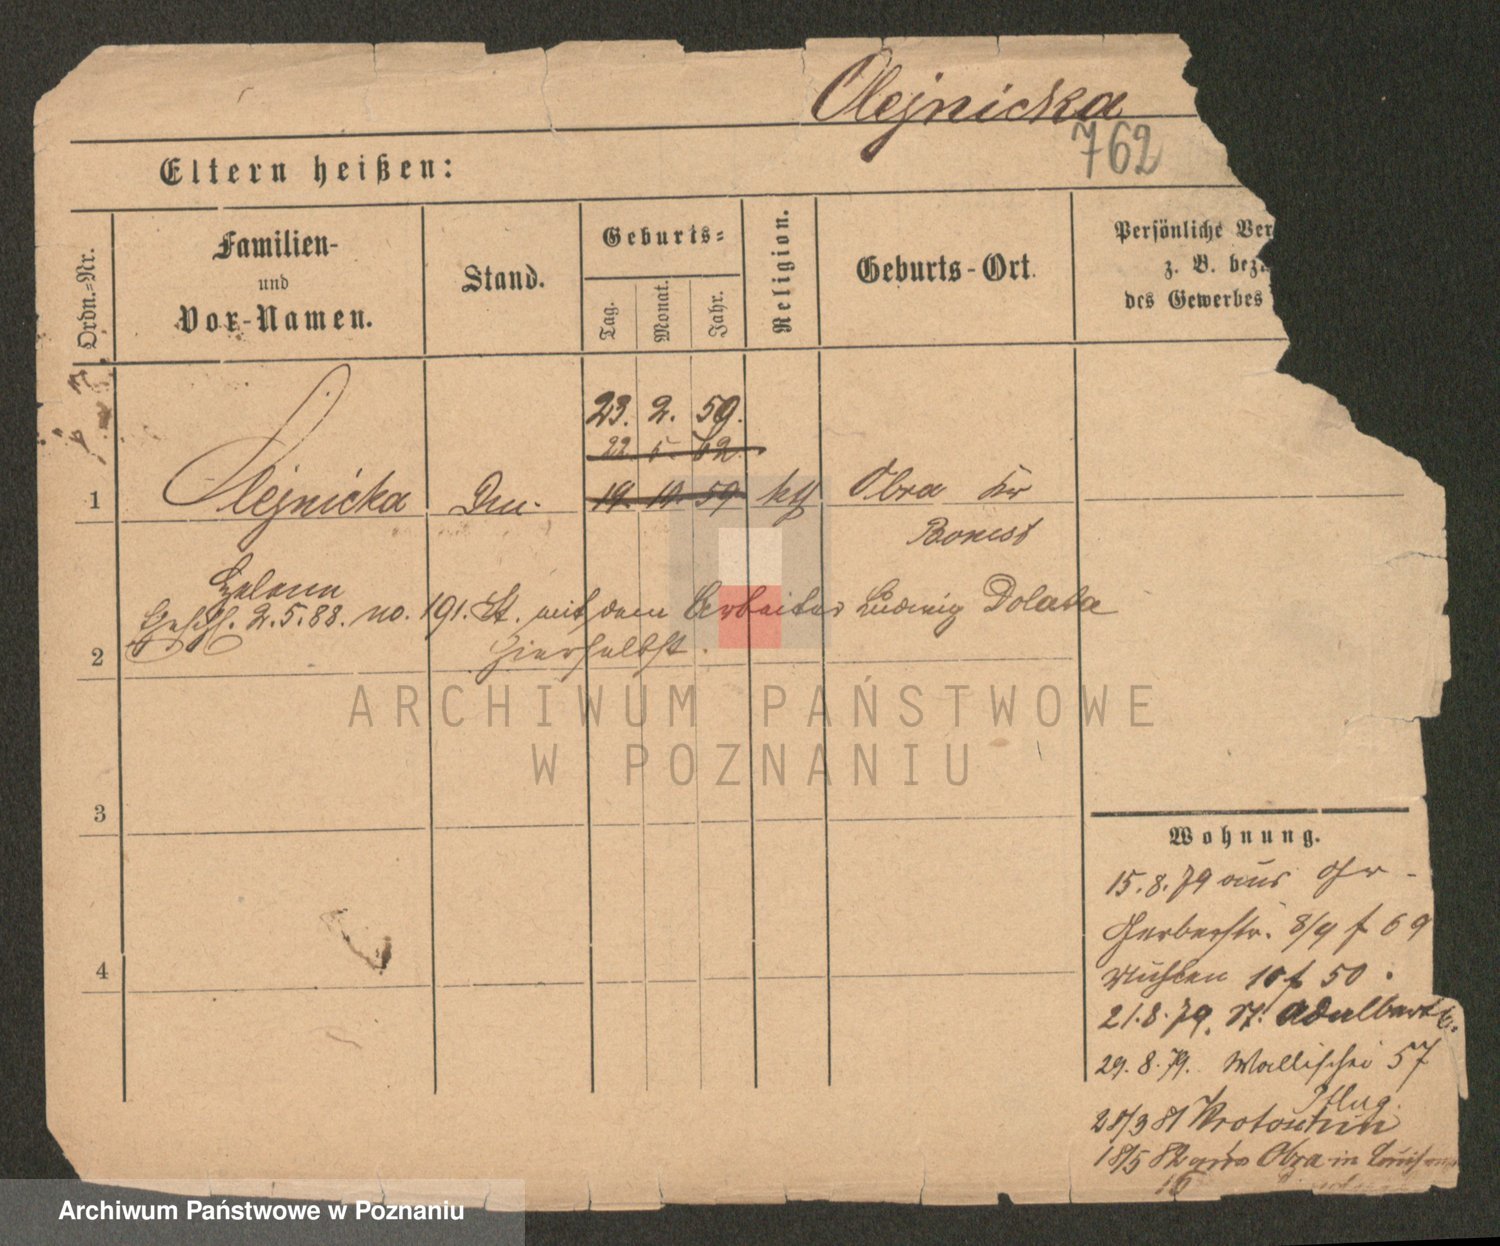 Olejnicka
762
Eltern heißen:
Ordn.-Nr.
Familien-
und
Vor-Namen.
Stand.
Geburts-
Tag.
Monat.
Jahr.
Religion.
Geburts-Ort.
Persönliche Ver
z. B. bez.
des Gewerbes
23. 2. 59.
22. 5. 62.
1 Olejnicka 19. 10. 59 kth Obra Kr
Bomst
Helene
2.5.88. no. 191. St. mit dem Arbeiter Ludwig Dolata
2 hierselbst.
3
4
Wohnung.
15.8.79 aus
Gerberstr. 8/9 f 69
Mühlen 10 f 50.
21.8.79. St. Adalbert
29.8.79. Wallischei 57
Pflug.
28/3 81 Krotoschin
18/5 82 aus Obra in
16
ARCHIWUM PAŃSTWOWE
W POZNANIU
Archiwum Państwowe w Poznaniu